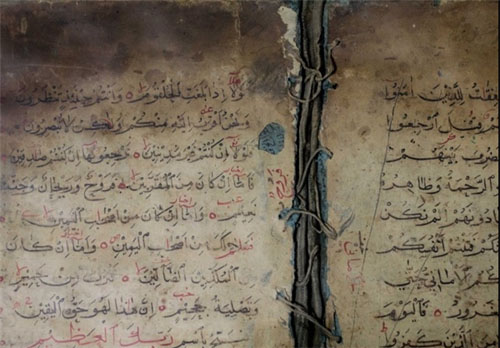 فقت للذين امنوا
قيل ارجعوا
ضرب بينهم
الرحمة وظاهره
ادونهم الم نكن
كم فتنتم انفسكم
كم الاماني حتى
غرور فاليوم
ين كفروا
فلولا اذا بلغت الحلقوم وانتم حينئذ تنظرون
ونحن اقرب اليه منكم ولكن لا تبصرون
فلولا ان كنتم غير مدينين ترجعونها ان كنتم صدقين
فاما ان كان من المقربين فروح وريحان وجنت
نعيم واما ان كان من اصحاب اليمين
فسلام لك من اصحاب اليمين واما ان كان
من المكذبين الضالين فنزل من حميم
وتصلية جحيم ان هذا لهو حق اليقين
فسبح باسم ربك العظيم